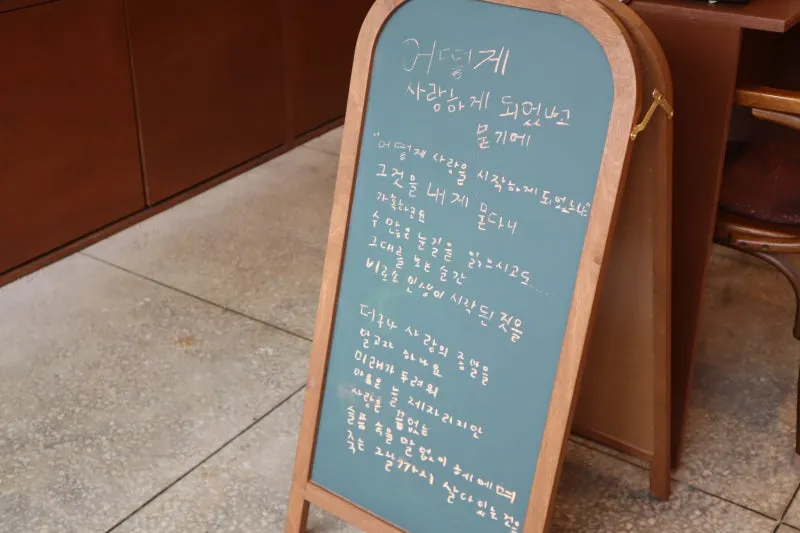 어떻게
사랑하게 되었냐고
묻기에
"어떻게 사랑을 시작하게 되었느냐"
그것을 내게 묻다니
가혹하군요
수많은 눈길을 읽으시고도...
그대를 보는 순간
비로소 인생이 시작된 것을
더구나 사랑의 종말을
알고자 하나요
미래가 두려워
마음은 늘 제자리지만
사랑은 끝없는
슬픔 속을 말 없이 헤매며
죽는 그날까지 살아있는 것을